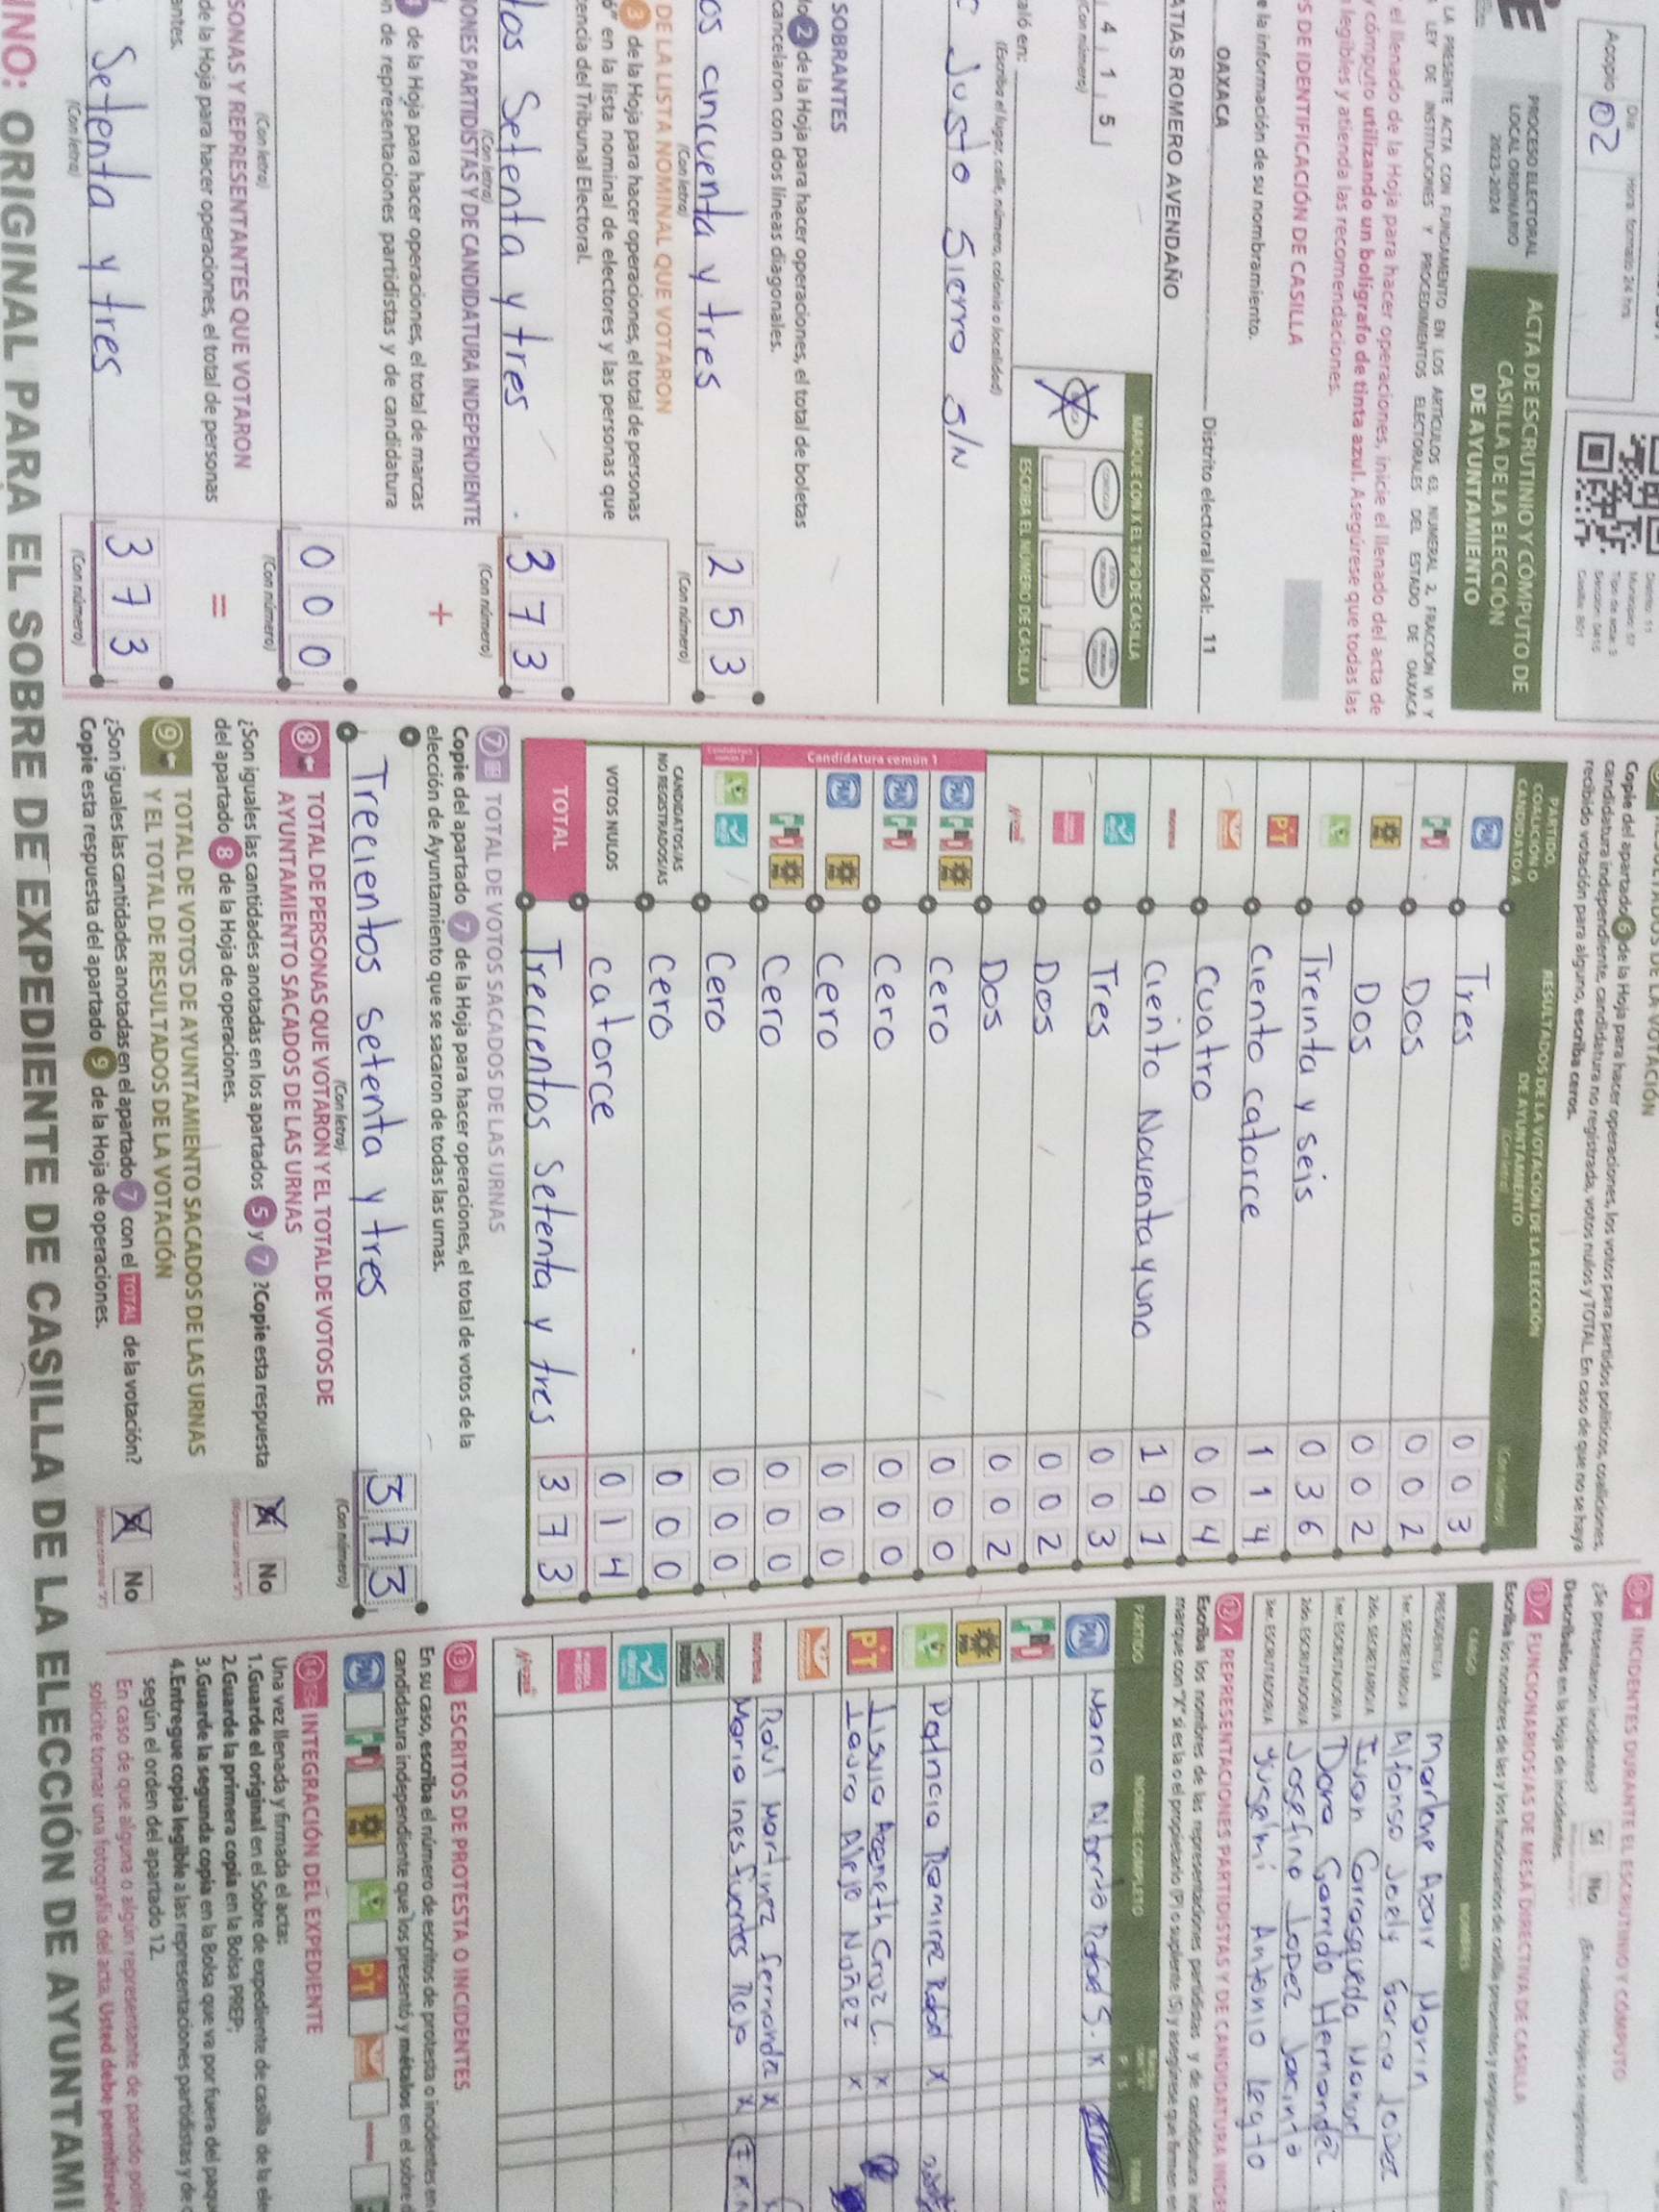 Día
Hora: formato 24 hrs.
Acopio 02
PROCESO ELECTORAL
LOCAL ORDINARIO
2023-2024
ACTA DE ESCRUTINIO Y CÓMPUTO DE
CASILLA DE LA ELECCIÓN
DE AYUNTAMIENTO
LA PRESENTE ACTA CON FUNDAMENTO EN LOS ARTÍCULOS 63, NUMERAL 2, FRACCIÓN VI Y
LEY DE INSTITUCIONES Y PROCEDIMIENTOS ELECTORALES DEL ESTADO DE OAXACA
el llenado de la Hoja para hacer operaciones, inicie el llenado del acta de
y cómputo utilizando un bolígrafo de tinta azul. Asegúrese que todas las
legibles y atienda las recomendaciones.
S DE IDENTIFICACIÓN DE CASILLA
e la información de su nombramiento.
OAXACA Distrito electoral local: 11
ATIAS ROMERO AVENDAÑO
4 1 5
(Con número)
MARQUE CON X EL TIPO DE CASILLA
ESCRIBA EL NÚMERO DE CASILLA
aló en:
(Escriba el lugar, calle, número, colonia o localidad)
Justo Sierro S/N
SOBRANTES
2 de la Hoja para hacer operaciones, el total de boletas
cancelaron con dos líneas diagonales.
os cincuenta y tres 2 5 3
(Con letra) (Con número)
DE LA LISTA NOMINAL QUE VOTARON
3 de la Hoja para hacer operaciones, el total de personas
ó" en la lista nominal de electores y las personas que
encia del Tribunal Electoral.
tos Setenta y tres 3 7 3
(Con letra) (Con número)
IONES PARTIDISTAS Y DE CANDIDATURA INDEPENDIENTE
de la Hoja para hacer operaciones, el total de marcas
n de representaciones partidistas y de candidatura
+
0 0 0
(Con letra) (Con número)
SONAS Y REPRESENTANTES QUE VOTARON
de la Hoja para hacer operaciones, el total de personas
antes.
=
Setenta y tres 3 7 3
(Con letra) (Con número)
RESULTADOS DE LA VOTACIÓN
Copie del apartado 6 de la Hoja para hacer operaciones, los votos para partidos políticos, coaliciones,
candidatura independiente, candidatura no registrada, votos nulos y TOTAL. En caso de que no se haya
recibido votación para alguno, escriba ceros.
PARTIDO,
COALICIÓN O
CANDIDATO/A
RESULTADOS DE LA VOTACIÓN DE LA ELECCIÓN
DE AYUNTAMIENTO
(Con letra) (Con número)
PAN Tres 0 0 3
PRI Dos 0 0 2
PRD Dos 0 0 2
Treinta y seis 0 3 6
PT Ciento catorce 1 1 4
Cuatro 0 0 4
morena Ciento Noventa y uno 1 9 1
Tres 0 0 3
Dos 0 0 2
Dos 0 0 2
Candidatura común 1
PAN PRI PRD Cero 0 0 0
PAN PRI Cero 0 0 0
PAN PRD Cero 0 0 0
PRI PRD Cero 0 0 0
Cero 0 0 0
CANDIDATOS/AS
NO REGISTRADOS/AS Cero 0 0 0
VOTOS NULOS catorce 0 1 4
TOTAL Trecientos Setenta y tres 3 7 3
7 TOTAL DE VOTOS SACADOS DE LAS URNAS
Copie del apartado 7 de la Hoja para hacer operaciones, el total de votos de la
elección de Ayuntamiento que se sacaron de todas las urnas.
Trecientos setenta y tres 3 7 3
(Con letra) (Con número)
8 TOTAL DE PERSONAS QUE VOTARON Y EL TOTAL DE VOTOS DE
AYUNTAMIENTO SACADOS DE LAS URNAS
¿Son iguales las cantidades anotadas en los apartados 5 y 7 ? Copie esta respuesta
del apartado 8 de la Hoja de operaciones.
No
9 TOTAL DE VOTOS DE AYUNTAMIENTO SACADOS DE LAS URNAS
Y EL TOTAL DE RESULTADOS DE LA VOTACIÓN
¿Son iguales las cantidades anotadas en el apartado 7 con el TOTAL de la votación?
Copie esta respuesta del apartado 9 de la Hoja de operaciones.
No
INCIDENTES DURANTE EL ESCRUTINIO Y CÓMPUTO
¿Se presentaron incidentes? Sí No
Descríbalos en la Hoja de incidentes.
11 FUNCIONARIOS/AS DE MESA DIRECTIVA DE CASILLA
CARGO NOMBRES
PRESIDENTE/A Marlene Azair Marin
1er. SECRETARIO/A Alfonso Joely Garcia Lopez
2do. SECRETARIO/A Ivan Carrasquedo
1er. ESCRUTADOR/A Dara Garrido Hernandez
2do. ESCRUTADOR/A Josefina Lopez Jacinto
3er. ESCRUTADOR/A Antonio
12 REPRESENTACIONES PARTIDISTAS Y DE CANDIDATURA INDE
Escriba los nombres de las representaciones partidistas y de candidatura
marque con "X" si es la o el propietario (P) o suplente (S) y asegúrese que firmen
PARTIDO NOMBRE COMPLETO P S FIRMA
PAN Mario Alberto S. X
PRI
PRD
Patricia Ramirez X
PT Azeneth Cruz L. X
Lauro Alejo Nuñez X
morena Raul Martinez Fernandez X
Maria Ines Fuentes Rojo X
13 ESCRITOS DE PROTESTA O INCIDENTES
En su caso, escriba el número de escritos de protesta o incidentes en
candidatura independiente que los presentó y métalos en el sobre d
PAN PRI PRD PT
14 INTEGRACIÓN DEL EXPEDIENTE
Una vez llenada y firmada el acta:
1.Guarde el original en el Sobre de expediente de casilla de la ele
2.Guarda la primera copia en la Bolsa PREP;
3.Guarde la segunda copia en la Bolsa que va por fuera del paqu
4.Entregue copia legible a las representaciones partidistas y de c
según el orden del apartado 12.
En caso de que alguna o algún representante de partido polít
solicite tomar una fotografía del acta, Usted debe permitírsel
INO: ORIGINAL PARA EL SOBRE DE EXPEDIENTE DE CASILLA DE LA ELECCIÓN DE AYUNTAMI